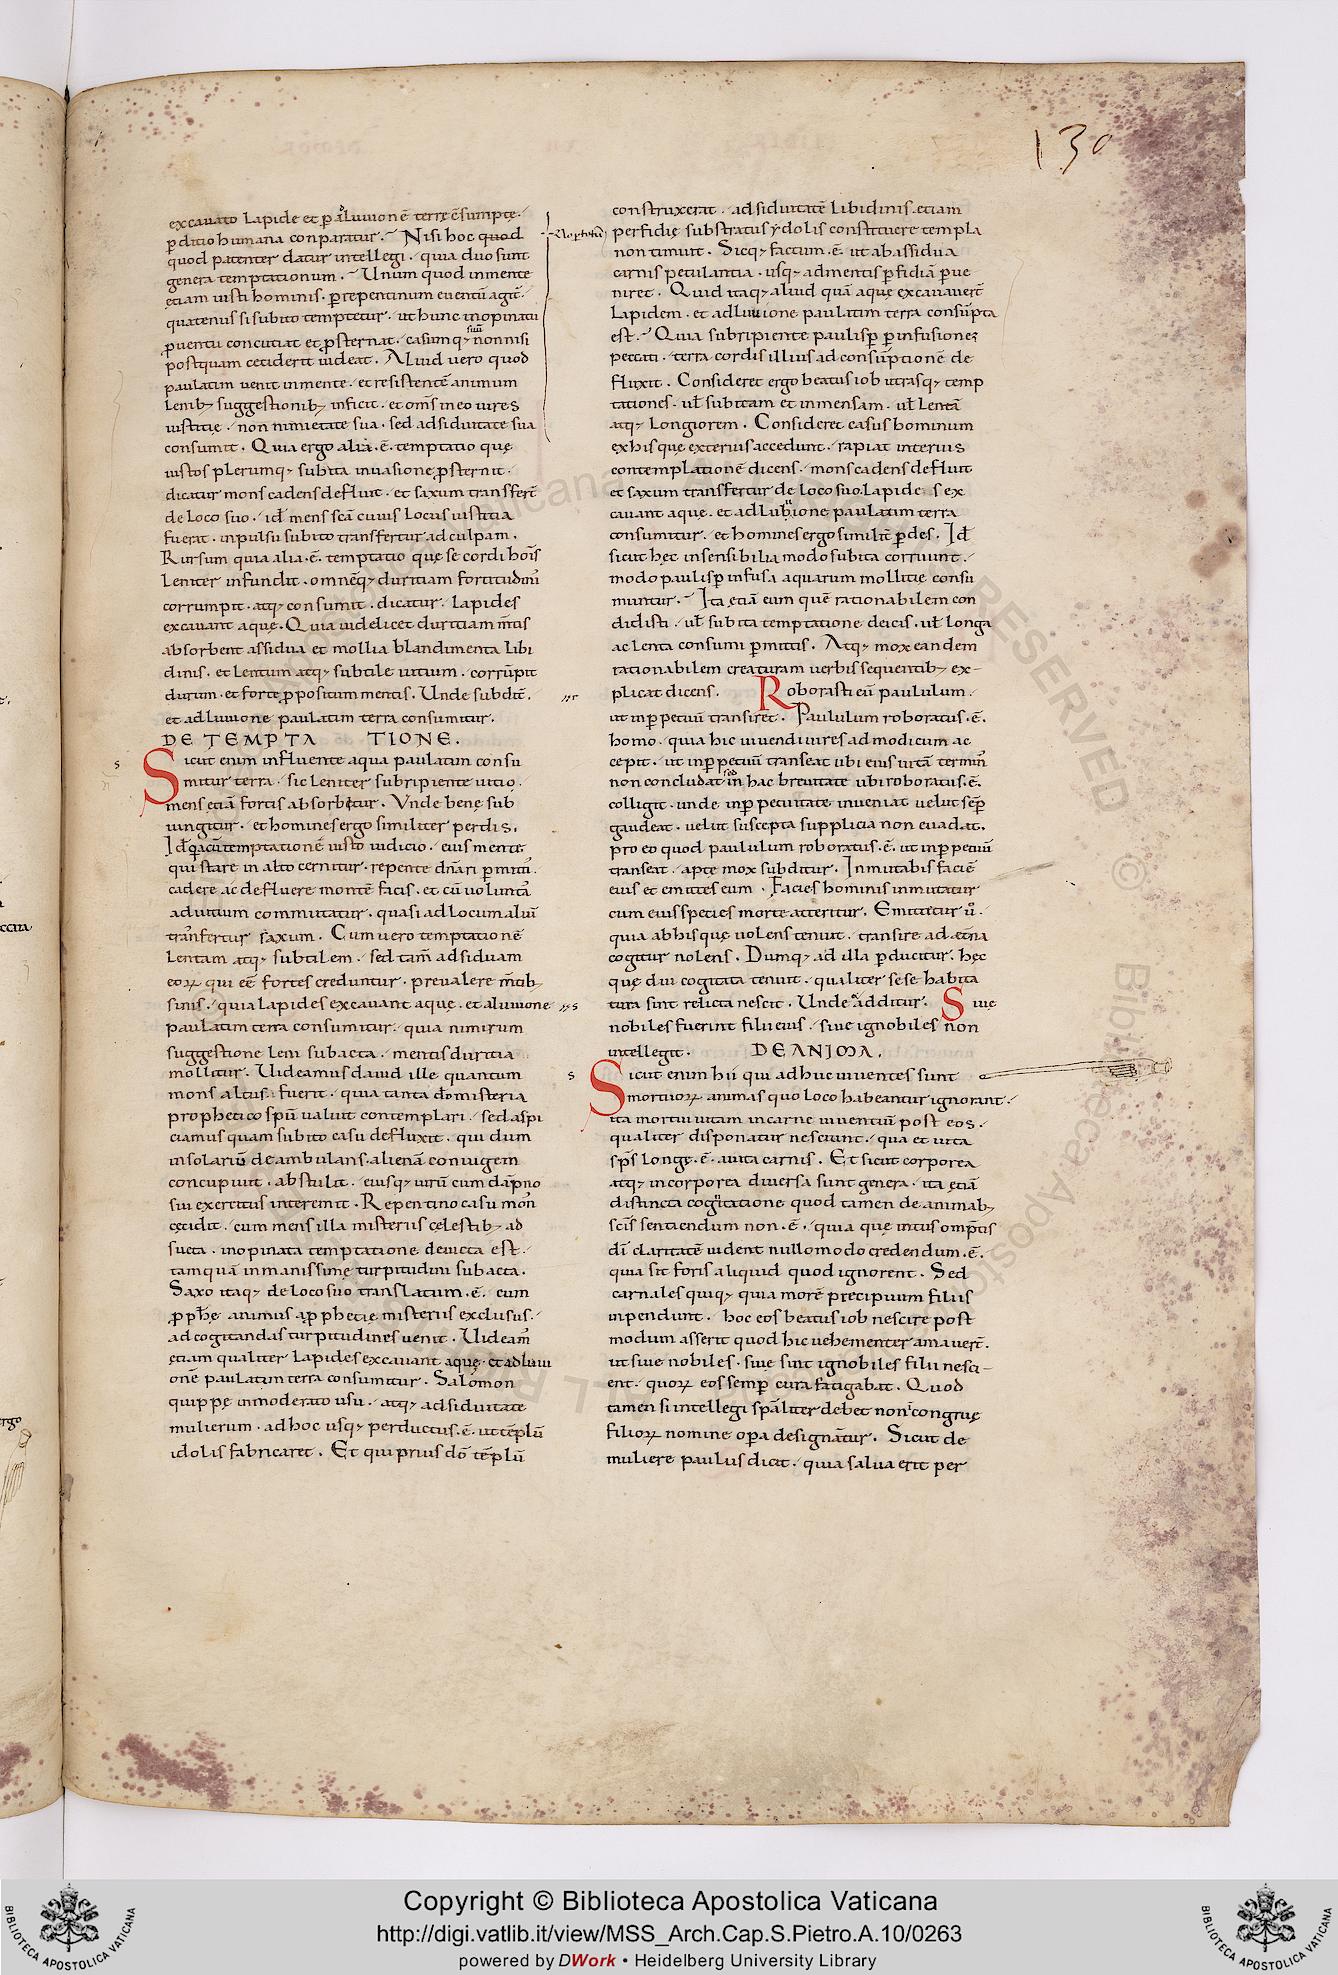 130
excauato lapide et p alluuionē terrę ēsumptę.
pditio humana conparatur. Nisi hoc quod
quod patenter datur intellegi. quia duo sunt
genera temptationum. Unum quod inmente
etiam iusti hominis. prepentinum euentū agit.
quatenus si subito temptetur. ut hunc inopinatu
puentu concutiat et psternat. casumq; suū non nisi
postquam ceciderit uideat. Aliud uero quod
paulatim uenit inmente. et resistentē animum
lenib; suggestionib; inficit. et om̄s ineo uires
iustitię. non nimietate sua. sed adsiduitate sua
consumit. Quia ergo alia .ē. temptatio quę
iustos plerumq; subita inuasione psternit.
dicatur mons cadens defluit. et saxum transfert̄
de loco suo. id mens scā cuius locus iustitia
fuerat. inpulsu subito transfertur ad culpam.
Rursum quia alia .ē. temptatio quę se cordi hōis
leniter infundit. omnēq; duritiam fortitudinis
corrumpit. atq; consumit. dicatur. lapides
excauant aquę. Quia uidelicet duritiam m̄tis
absorbent assidua et mollia blandimenta libi
dinis. et lentum atq; subtile uitium. corrūpit
durum. et forte ppositum mentis. Unde subdit̄.
et adluuione paulatim terra consumitur.
DE TEMPTA TIONE.
Sicut enim influente aqua paulatim consu
mitur terra. sic leniter subripiente uitio.
mens etiā fortis absorbetur. Unde bene sub
iungitur. et homines ergo similiter perdis.
Id temptationē iusto iudicio. eius mente
qui stare in alto cernitur. repente
cadere ac defluere montē facis. et cū uoluntā
ad uitium commutatur. quasi ad locum aliū
tranfertur saxum. Cum uero temptationē
lentam atq; subtilem. sed tam̄ adsiduam
eoꝝ qui eē fortes creduntur. preualere m̄tib;
sinis. quia lapides excauant aquę. et aluuione
paulatim terra consumitur. quia nimirum
suggestione leni subacta. mentis duritia
mollitur. Uideamus dauid ille quantum
mons altus fuerit. quia tanta dī misteria
prophetico spū ualuit contemplari. sed aspi
ciamus quam subito casu defluxit. qui dum
insolariū deambulans. alienā coniugem
concupiuit. abstulit. eiusq; uirū cum dāpno
sui exercitus interemit. Repentino casu mōn
cecidit. cum mens illa misteriis cęlestib; ad
sueta. inopinata temptatione deuicta est.
tamquā inmanissimę turpitudini subacta.
Saxo itaq; de loco suo translatum .ē. cum
pphę animus a pphetię misteriis exclusus.
ad cogitandas turpitudines uenit. Uideam̄
etiam qualiter lapides excauant aquę. et adluui
one paulatim terra consumitur. Salomon
quippe inmoderato usu. atq; adsiduitate
mulierum. ad hoc usq; perductus .ē. ut tēplū
idolis fabricaret. Et qui prius dō tēplū
construxerat. adsiduitatē libidinis. etiam
perfidię substratus ydolis constituere templa
non timuit. Sicq; factum .ē. ut ab assidua
carnis petulantia. usq; ad mentis pfidiā pue
niret. Quid itaq; aliud quā aquę excauauert̄
lapidem. et adluuione paulatim terra consūpta
est. Quia subripiente paulisp p infusionē
peccati. terra cordis illius ad consūptionē de
fluxit. Consideret ergo beatus iob utrasq; temp
tationes. ul̄ subitam et inmensam. ul̄ lentā
atq; longiorem. Consideret casus hominum
ex his quę exterius accedunt. rapiat interius
contemplationē dicens. mons cadens defluit
et saxum transfertur de loco suo. lapides ex
cauant aquę. et adluuione paulatim terra
consumitur. et homines ergo similit̄ pdes. Id
sicut hęc insensibilia modo subita corruunt.
modo paulisp infusa aquarum mollitię consu
muntur. Ita etiā eum quē rationabilem con
didisti. ul̄ subita temptatione deicis. ul̄ longa
ac lenta consumi pmittis. Atq; mox eandem
rationabilem creaturam uerbis sequentib; ex-
plicat dicens. Roborasti eū paululum.
ut inppetuū transiret. Paululum roboratus .ē.
homo. quia hic uiuendi uires ad modicum ac
cepit. ut inppetuū transeat ubi eius uitā termin̄
non concludat. in hac breuitate ubi roboratus .ē.
colligit. unde inppetuitate inueniat uelut semp
gaudeat. uelut suscepta supplicia non euadat.
pro eo quod paululum roboratus .ē. ut inppetuū
transeat. apte mox subditur. Inmutabis faciē
eius et emittes eum. Facies hominis inmutatur
cum eius species morte atteritur. Emittetur ū.
quia ab his quę uolens tenuit. transire ad ętna
cogitur nolens. Dumq; ad illa pducitur. hęc
quę diu cogitata tenuit. qualiter sese habita
tura sint relicta nescit. Unde additur. Siue
nobiles fuerint filii eius. siue ignobiles non
intelleget. DE ANIMA.
Sicut enim hii qui adhuc uiuentes sunt
mortuoꝝ animas quo loco habeantur ignorant.
ita mortui uitam in carne uiuentiū post eos.
qualiter disponatur nesciunt. quia et uita
sp̄s longe .ē. a uita carnis. Et sicut corporea
atq; incorporea diuersa sunt genera. ita etiā
distincta cogitatione quod tamen de animab;
scīs sentiendum non .ē. quia quę intus omptis
dī claritatē uident nullo modo credendum .ē.
quia sit foris aliquid quod ignorent. Sed
carnales quiq; quia morē precipuum filiis
inpendunt. hoc eos beatus iob nescire post
modum asserit quod hic uehementer amauert̄.
ut siue nobiles. siue sint ignobiles filii nesci-
ent. quoꝝ eos semp cura fatigabat. Quod
tamen si intellegi spāliter debet non incongrue
filioꝝ nomine opa designātur. Sicut de
muliere paulus dicit. quia salua erit per
Copyright © Biblioteca Apostolica Vaticana
http://digi.vatlib.it/view/MSS_Arch.Cap.S.Pietro.A.10/0263
powered by DWork • Heidelberg University Library
BIBLIOTECA APOSTOLICA VATICANA
BIBLIOTECA APOSTOLICA VATICANA